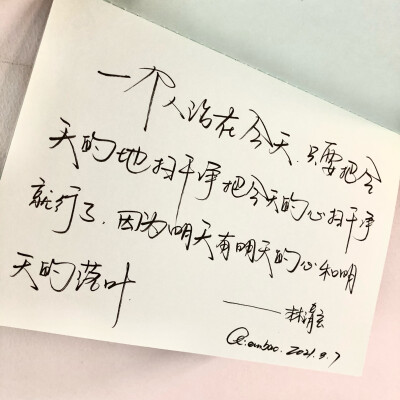 一个人活在今天.只要把今
天的地扫干净把今天的心扫干净
就行了.因为明天有明天的心和明
天的落叶
——林清玄
2021.9.7